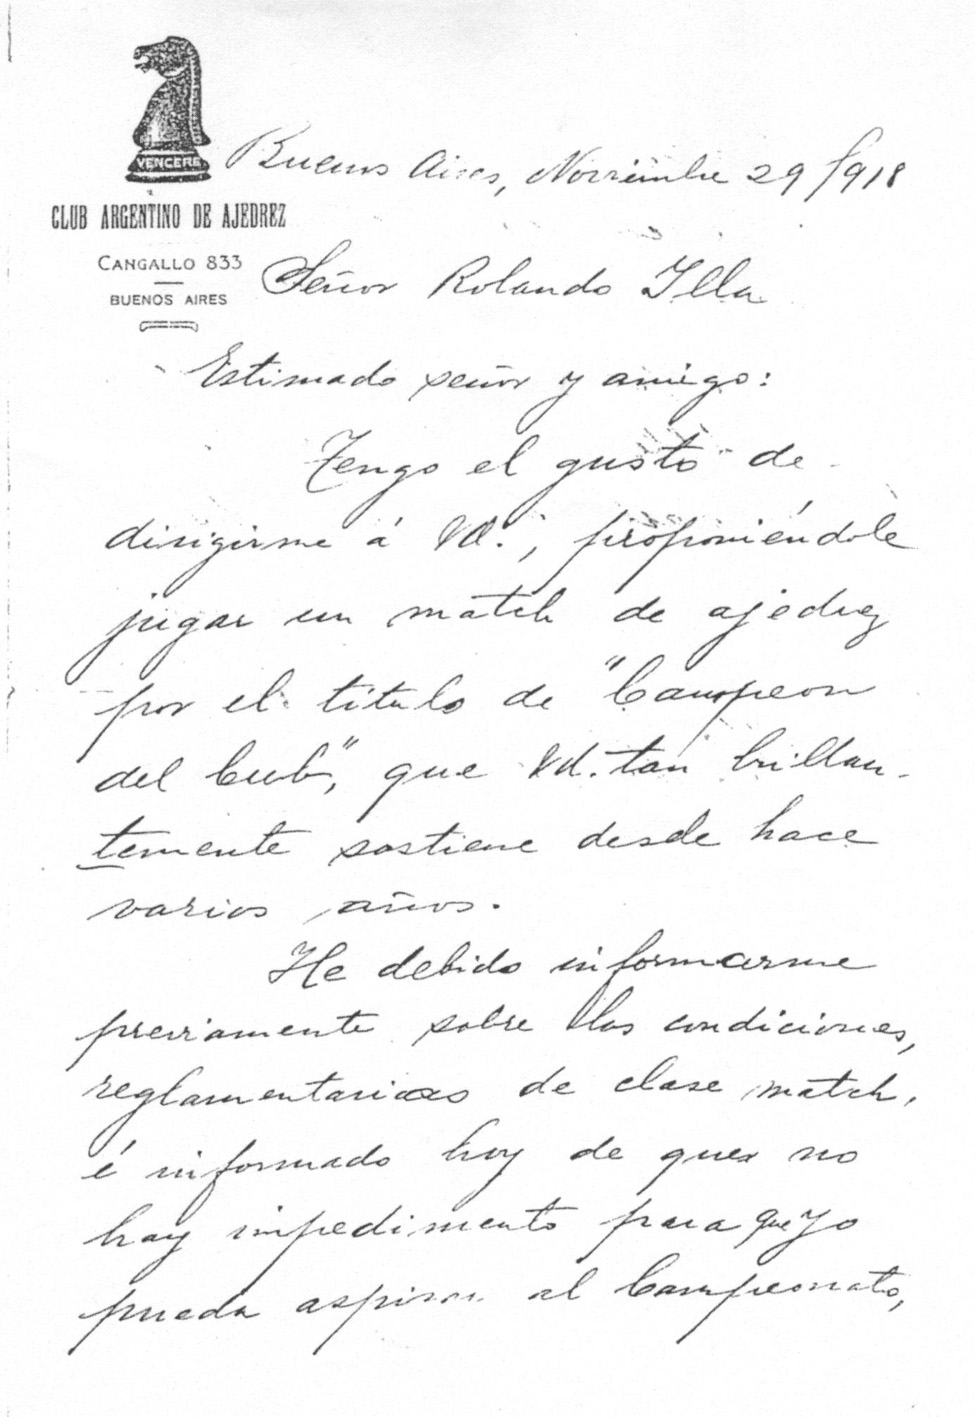 VENCERE
CLUB ARGENTINO DE AJEDREZ
CANGALLO 833
BUENOS AIRES
Buenos Aires, Noviembre 29/918
Señor Rolando Illa
Estimado señor y amigo:
Tengo el gusto de
dirigirme á Vd., proponiéndole
jugar un match de ajedrez
por el titulo de "Campeon
del Club", que Vd. tan brillan-
temente sostiene desde hace
varios años.
He debido informarme
previamente sobre las condiciones,
reglamentarias de clase match,
é informado hoy de que no
hay impedimento para que yo
pueda aspirar al Campeonato,